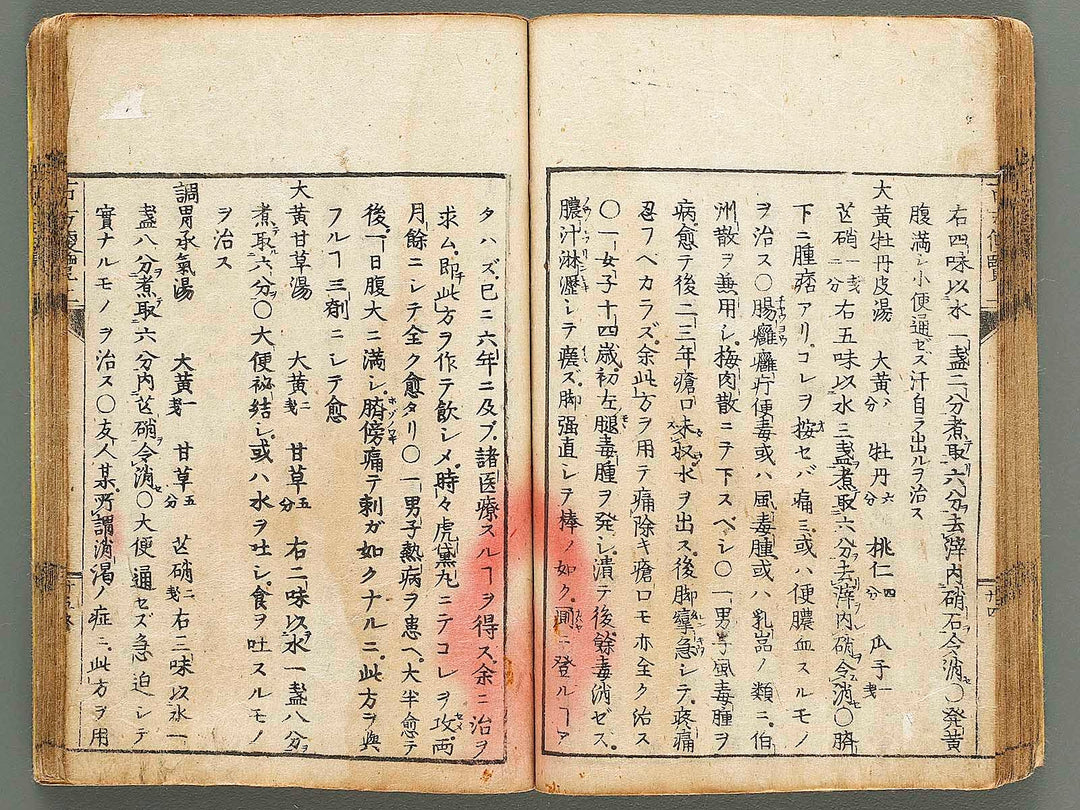 右四味以水一盞二分煮取六分去滓内硝石令消〇発黄
腹満シ小便通ゼズ汗自ラ出ルヲ治ス
大黄牡丹皮湯 大黄八分 牡丹六分 桃仁四分 瓜子一戔
芒硝一戔二分右五味以水三盞煮取六分去滓内硝令消〇臍
下ニ腫痞アリコレヲ按セバ痛ミ或ハ便膿血スルモノ
ヲ治ス〇腸癰癰疔便毒或ハ風毒腫或ハ乳岩ノ類ニ伯
州散ヲ兼用シ梅肉散ニテ下スベシ〇一男子風毒腫ヲ
病愈テ後二三年瘡口未収水ヲ出ス後脚攣急シテ疼痛
忍フヘカラズ余此方ヲ用テ痛除キ瘡口モ亦全ク治ス
〇一女子十四歳初左腿毒腫ヲ発シ潰テ後餘毒消ゼス
膿汁淋瀝シテ癒ス脚强直シテ棒ノ如ク厠ニ登ルヿア
タハズ已ニ六年ニ及ブ諸医療スルヿヲ得ス余ニ治ヲ
求ム即此方ヲ作テ飲シメ時々虎黛丸ニテコレヲ攻両
月餘ニシテ全ク愈タリ〇一男子熱病ヲ患ヘ大半愈テ
後一日腹大ニ満シ臍傍痛テ刺ガ如クナルニ此方ヲ與
フルヿ三劑ニシテ愈
大黄甘草湯 大黄二戔 甘草五分 右二味以水一盞八分
煮取六分〇大便祕結シ或ハ水ヲ吐シ食ヲ吐スルモノ
ヲ治ス
調胃承氣湯 大黄一戔 甘草五分 芒硝二戔右三味以水一
盞八分煮取六分内芒硝令消〇大便通ゼズ急迫シテ
實ナルモノヲ治ス〇友人某所謂消渇ノ症ニ此方ヲ用